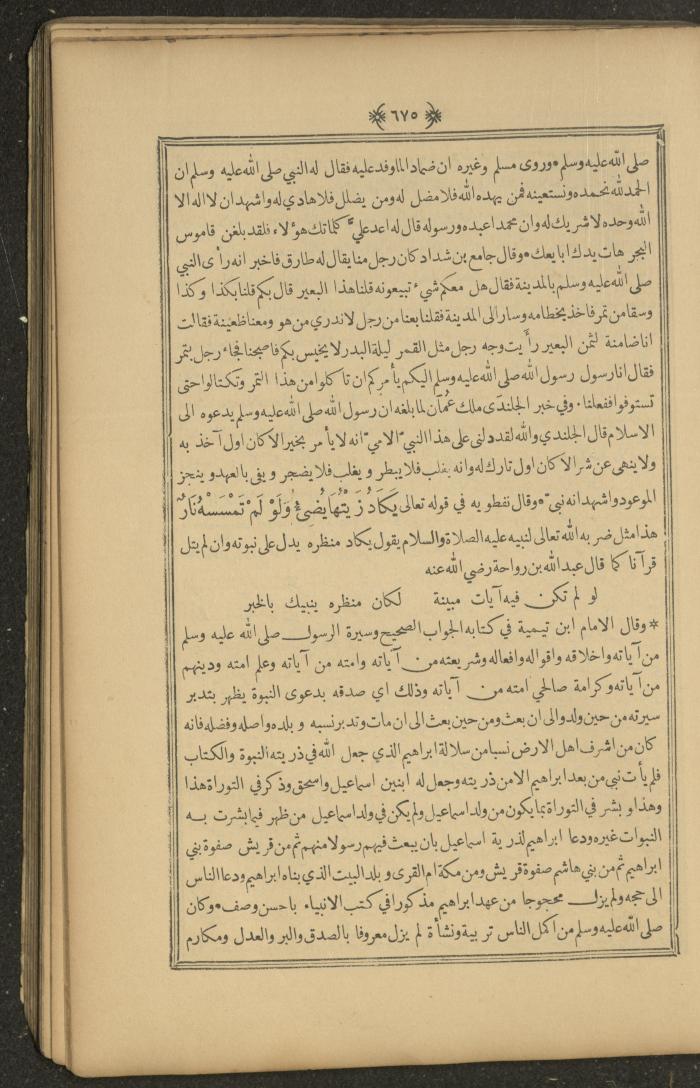 ﴿ ٦٧٥ ﴾
صلى الله عليه وسلم • وروى مسلم وغيره ان ضمادا لما وفد عليه فقال له النبي صلى الله عليه وسلم ان
الحمد لله نحمده ونستعينه فمن يهده الله فلا مضل له ومن يضلل فلا هادي له واشهد ان لا اله الا
الله وحده لا شريك له وان محمدا عبده ورسوله قال له اعد عليّ كلماتك هؤلاء فلقد بلغن قاموس
البحر هات يدك ابايعك • وقال جامع بن شداد كان رجل منا يقال له طارق فاخبر انه رأى النبي
صلى الله عليه وسلم بالمدينة فقال هل معكم شيء تبيعونه قلنا هذا البعير قال بكم قلنا بكذا وكذا
وسقا من تمر فاخذ بخطامه وسار الى المدينة فقلنا بعنا من رجل لا ندري من هو ومعنا ظعينة فقالت
انا ضامنة لثمن البعير رأيت وجه رجل مثل القمر ليلة البدر لا يخيس بكم فاصبحنا فجاء رجل بتمر
فقال انا رسول رسول الله صلى الله عليه وسلم اليكم يأمركم ان تاكلوا من هذا التمر وتكتالوا حتى
تستوفوا ففعلنا • وفي خبر الجلندى ملك عُمَان لما بلغه ان رسول الله صلى الله عليه وسلم يدعوه الى
الاسلام قال الجلندي والله لقد دلنى على هذا النبيّ الاميّ انه لا يأمر بخير الا كان اول آخذ به
ولا ينهى عن شر الا كان اول تارك له وانه يغلب فلا يبطر ويغلب فلا يضجر ويفى بالعهد وينجز
الموعود واشهد انه نبيّ • وقال نفطويه في قوله تعالى يَكَادُ زَيْتُهَا يُضِيءُ وَلَوْ لَمْ تَمْسَسْهُ نَارٌ
هذا مثل ضربه الله تعالى لنبيه عليه الصلاة والسلام يقول يكاد منظره يدل على نبوته وان لم يتل
قرآنا كما قال عبد الله بن رواحة رضي الله عنه
لو لم تكن فيه آيات مبينة لكان منظره ينبيك بالخبر
* وقال الامام ابن تيمية في كتابه الجواب الصحيح وسيرة الرسول صلى الله عليه وسلم
من آياته واخلاقه واقواله وافعاله وشريعته من آياته وامته من آياته وعلم امته ودينهم
من آياته وكرامة صالحي امته من آياته وذلك اي صدقه بدعوى النبوة يظهر بتدبر
سيرته من حين ولد والى ان بعث ومن حين بعث الى ان مات وتدبر نسبه وبلده واصله وفصله فانه
كان من اشرف اهل الارض نسبا من سلالة ابراهيم الذي جعل الله في ذريته النبوة والكتاب
فلم يأت نبي من بعد ابراهيم الا من ذريته وجعل له ابنين اسماعيل واسحق وذكر في التوراة هذا
وهذا وبشر في التوراة بما يكون من ولد اسماعيل ولم يكن في ولد اسماعيل من ظهر فيما بشرت به
النبوات غيره ودعا ابراهيم لذرية اسماعيل بان يبعث فيهم رسولا منهم ثم من قريش صفوة بني
ابراهيم ثم من بني هاشم صفوة قريش ومن مكة ام القرى وبلد البيت الذي بناه ابراهيم ودعا الناس
الى حجه ولم يزل محجوجا من عهد ابراهيم مذكورا في كتب الانبياء باحسن وصف • وكان
صلى الله عليه وسلم من اكمل الناس تربية ونشأة لم يزل معروفا بالصدق والبر والعدل ومكارم